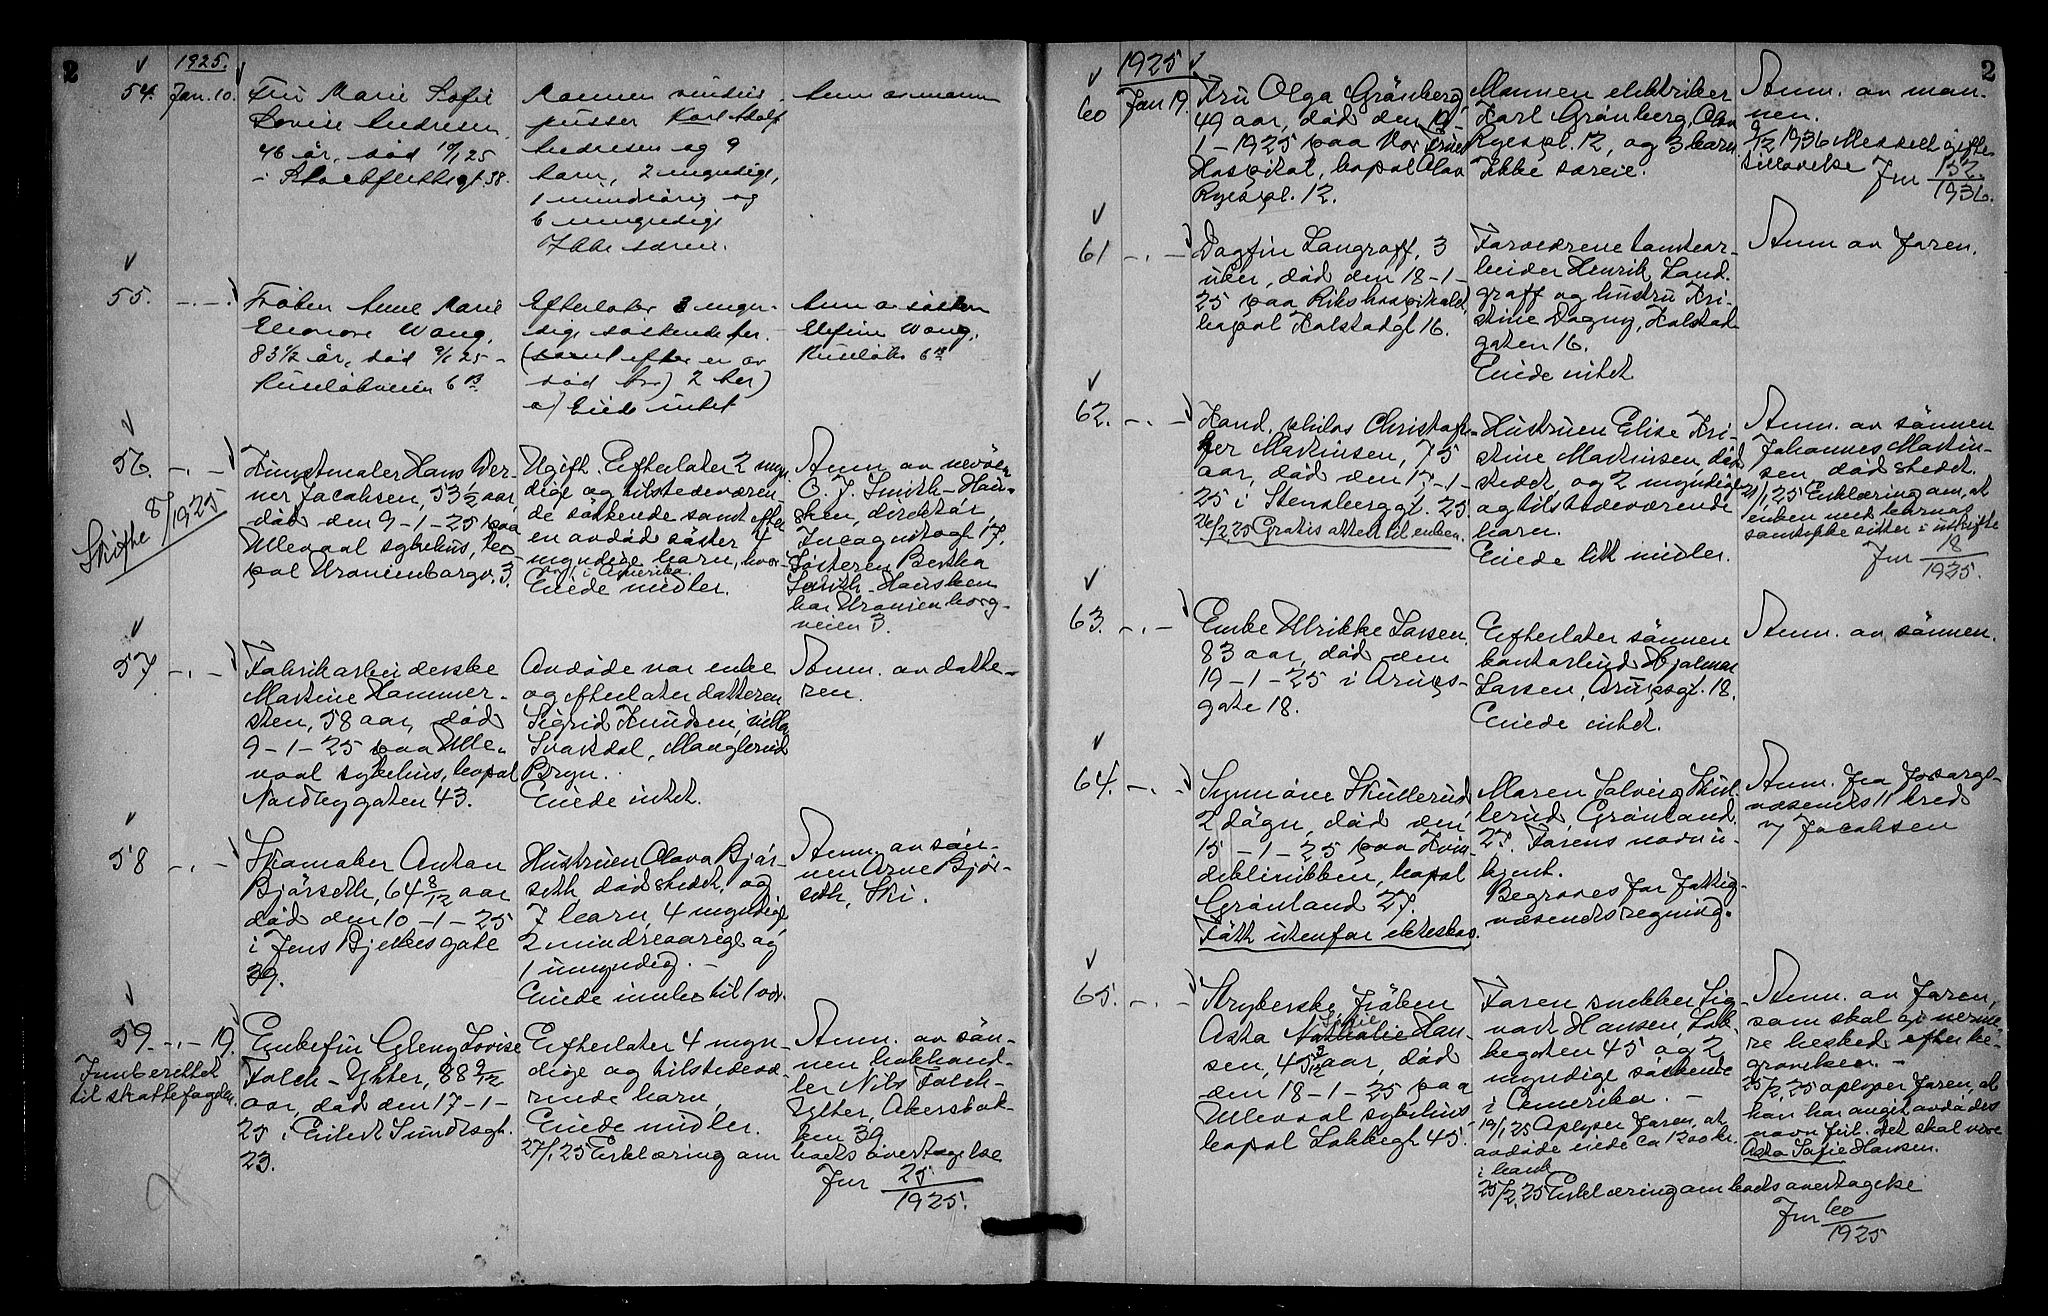 2
1925.
54. Jan. 10.
Fru Marie Sofie
Lovise Andresen,
46 år, død 10/1 25
Mannen vindus-
pusser Karl Adolf
Andresen og 9
barn, 2 myndige,
1 mindreårig og
6 umyndige
Ikke særeie.
Anm av mann
55. -.-.
Frøken Anne Marie
Eleonore Wang,
83 1/2 år, død 9/1 25 -
6 B
Efterlater 3 myn-
dige søskende
(samt efter en av
død bror) 2 
a) Eiede intet
Anm av søster
Wang,
6 B
56. -.-
Skifte 8/1925
Kunstmaler Hans Wer-
ner Jacobsen, 53 1/2 aar,
død den 9-1-25 paa
Ullevaal sykehus, bo-
pæl Uranienborgv. 3.
Ugift. Efterlater 2 myn-
dige og tilstedeværen-
de søskende samt efter
en avdød søster 4
myndige barn, hvor-
av 1 i Amerika
Eiede midler.
Anm. av nevøen
C. J. Smith-Hans-
ken, direktør
17.
Søsteren Bertha
Smith-Hansken
har Uranienborg-
veien 3.
57 -.-
Fabrikarbeiderske
Martine Hammer-
sten, 58 aar, død
9-1-25 paa Ulle-
vaal sykehus, bopæl
Nordbygaten 43.
Avdøde var enke
og efterlater datteren
Sigrid Knudsen, villa
Svaksdal, Manglerud
Bryn.
Eiede intet.
Anm. av datte-
ren.
58 -.-
Skomaker Anton
Bjørseth, 64 8/12 aar
død den 10-1-25
i Jens Bjelkes gate
29.
Hustruen Olava Bjør-
seth dødstedet, og
7 barn, 4 myndige
2 mindreaarige og
1 umyndig. -
Eiede
Anm. av søn-
nen Arne Bjør-
seth, Ski.
59. -.- 19.
Innberettet
til skattefogden.
Enkefru Gleng Lovise
Falch-Ytter, 88 9/12
aar, død den 17-1-
25 i Eilert Sundtsgt.
23.
Efterlater 4 myn-
dige og tilstedevæ-
rende barn,
Eiede midler.
27/1 25 Erklæring om boets overtagelse
Jnr 25/1925.
Anm. av søn-
nen bokhand-
ler Nils Falch-
Ytter, Akersbak-
ken 39
2
1925
60 Jan 19.
Fru Olga Grønberg,
49 aar, død den 19-
1-1925 paa Vor Frues
Hospital, bopæl Olav
Ryespl. 12.
Mannen elektriker
Karl Grønberg, Olav
Ryespl. 12, og 3 barn
Ikke særeie.
Anm. av man-
nen.
9/12 1936 Meddelt gifte
tillatelse Jnr 152/1936.
61 -.-
Dagfin Langraff, 3
uker, død den 18-1-
25 paa Rikshospitalet,
bopæl Kalstadgt 16.
Forældrene kontorar-
beider Henrik Land-
graff og hustru Kri-
stine Dagny, Kalstad
gaten 16.
Eiede intet
Anm av faren.
62. -.-
Kand. philos Christof-
fer Martinsen, 75
aar, død den 17-1-
25 i Stensberggt. 25
26/2 25 Gratis attest til enken.
Hustruen Elise Kri-
stine Martinsen, død
stedet og 2 myndige
og tilstedeværende
barn.
Eiede litt midler.
Anm. av sønnen
Johannes Martin-
sen, dødstedet.
21/1 25 Erklæring om, at
enken med barnas
samtykke sitter i uskifte
Jnr 18/1925.
63. -.-
Enke Ulrikke Larsen
83 aar, død den
19-1-25 i Arups-
gate 18.
Efterlater sønnen
kontorbud Hjalmar
Larsen, Arupsgt. 18.
Eiede intet.
Anm. av sønnen.
64. -.-
Synnøve Skullerud
2 døgn, død den
15-1-25 paa Kvin-
deklinikken, bopæl
Grønland 27.
Født utenfor ekteskap.
Maren Solveig Skul-
lerud, Grønland
27. Farens navn u-
kjent.
Begraves for fattig-
væsenets regning.
Anm. fra forsorgs-
væsenets 11 kreds
v/ Jacobsen
65. -.-
Strykerske, frøken
Asta Nathalie Sofie Han-
sen, 45 3/12 aar, død
den 18-1-25 paa
Ullevaal sykehus
bopæl Lakkegt 45.
Faren snekker Sig-
vart Hansen, Lak-
kegaten 45 og 2
myndige søskende
i Amerika. -
19/1 25 Oplyser faren, at
avdøde eiede ca 1200 kr.
i bank
25/2 25 Erklæring om boets overtagelse
Jnr 60/1925
Anm. av faren,
som skal gi nærme-
re besked efter be-
gravelsen. -
25/2 25 oplyser faren, at
han har angit avdødes
navn feil. Det skal være
Asta Sofie Hansen.